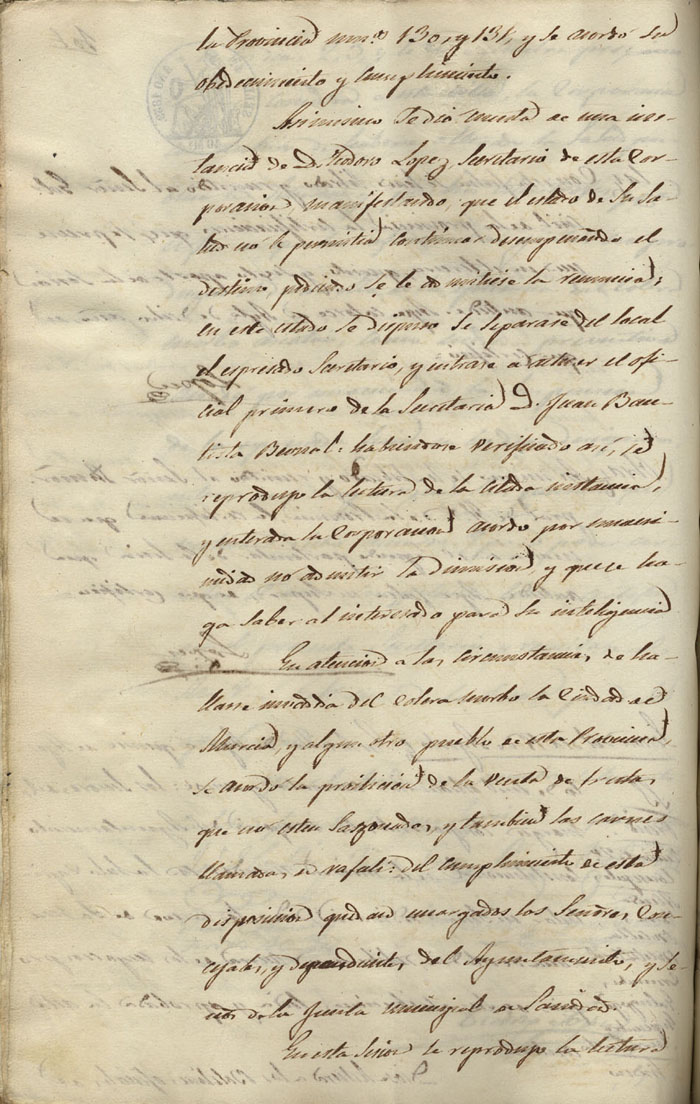 la Provincia num.s 130, y 131, y se acordó su
obedecimiento y cumplimiento.
Asimismo se dió cuenta de una ins-
tancia de D. Teodoro Lopez, Secretario de esta Cor-
poracion manifestando, que el estado de su sa-
lud no le permitia continuar desempeñando el
destino pidiendo se le admitiese la renuncia;
en este estado se dispuso se separase del local
el espresado Secretario, y entrase a actuar el ofi-
cial primero de la Secretaria D. Juan Bau-
tista Bernal: habiendose verificado asi, se
reprodujo la lectura de la citada instancia,
y enterada la Corporacion acordó por unani-
midad no admitir la dimision y que se ha-
ga saber al interesado para su inteligencia
En atencion a las circunstancias de ha-
llarse invadida del colera morbo la Ciudad de
Murcia, y algun otro pueblo de esta Provincia,
se acordó la proibicion de la venta de frutas
que no esten sazonadas, y tambien las carnes
llamadas de rafali: del cumplimiento de esta
disposicion quedan encargados los Señores Con-
cejales, y dependientes del Ayuntamiento, y se-
ñores de la Junta municipal de Sanidad.
En esta sesion se reprodujo la lectura